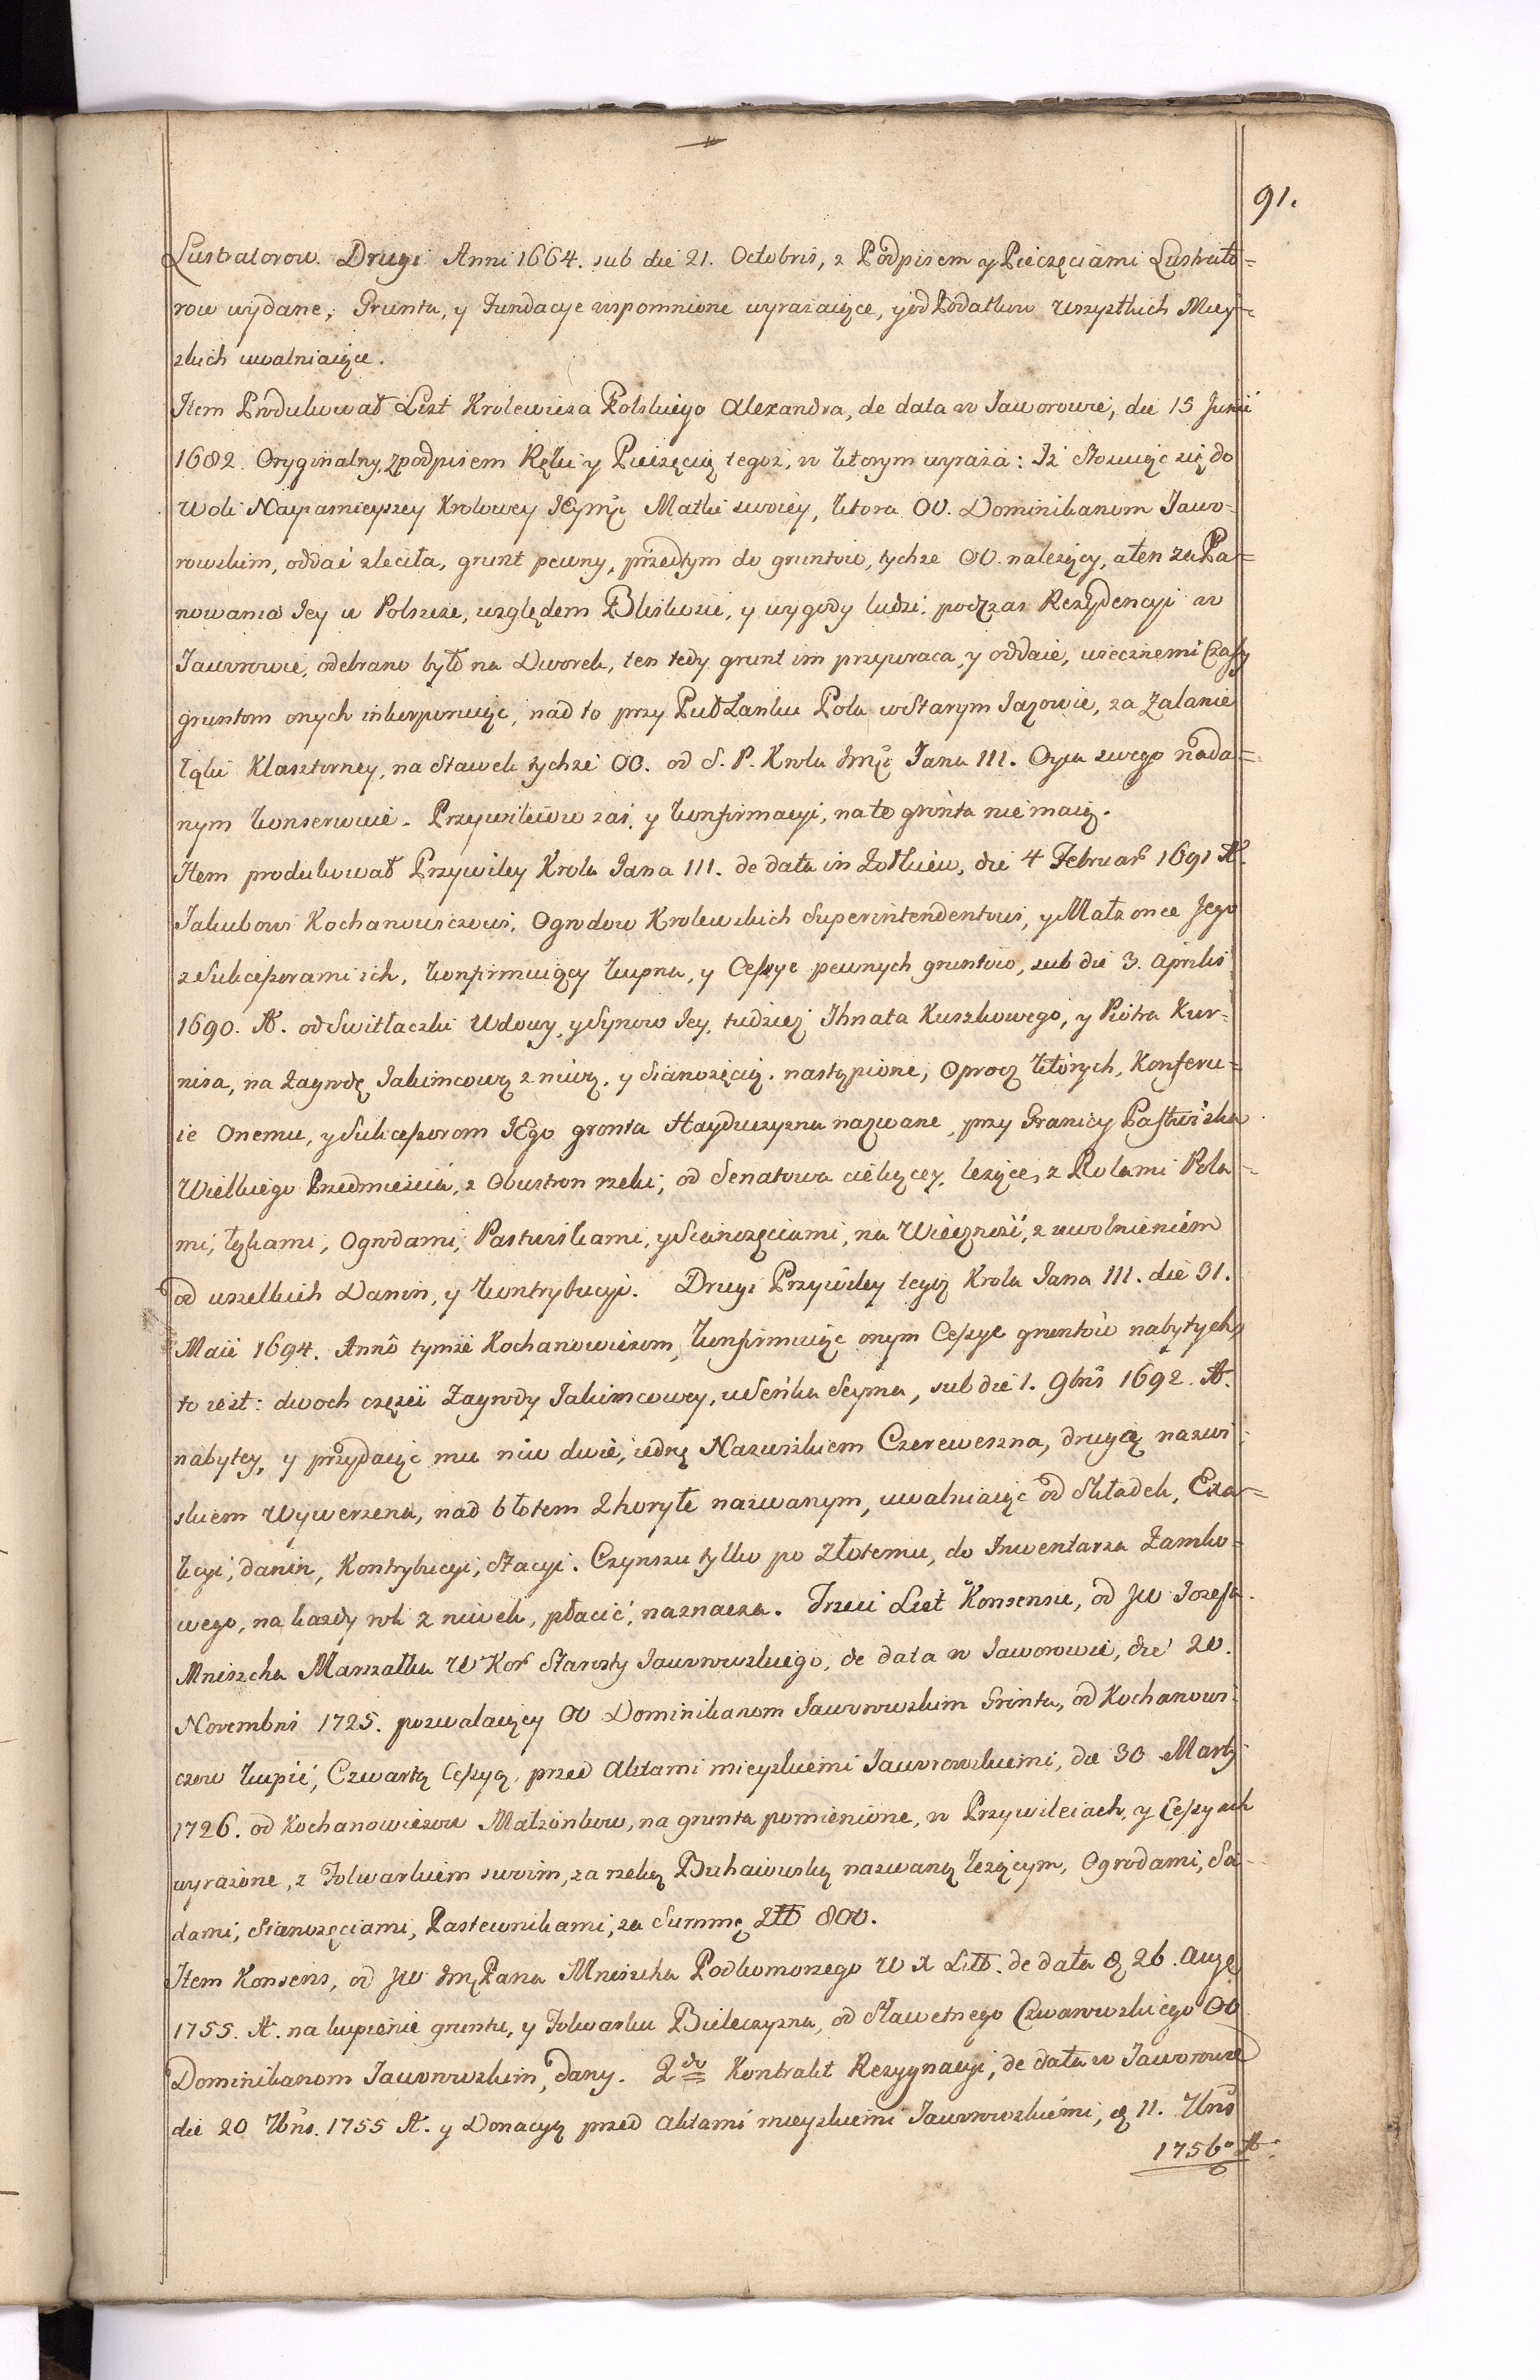 91.
Lustratorow. Drugi Anni 1664. sub die 21. Octobris, z Podpisem y Pieczęciami Lustrato=
row wydane, Grunta, y Fundacye wspomnione wyrazaiące, y od Podatkow wszystkich Miey=
skich uwalniaiące.
Item Produkował List Krolewica Polskiego Alexandra, de data w Jaworowie, die 15 Junii
1682 Oryginalny, z podpisem Ręki y Pieczęcią tegoz, w ktorym wyraza: Iz stosuiąc się do
woli Nayiasnieyszey Krolowey JEymci Matki swoiey, ktora OO. Dominikanom Jawo=
rowskim, oddać zleciła, grunt pewny, przedtym do gruntow, tychze OO. nalezący, a ten za Pa=
nowania Jey w Polszcze, względem Bliskości, y wygody ludzi, podczas Rezydencyi w
Jaworowie, odebrano było na Dworek, ten tedy grunt im przywraca, y oddaie, wiecznemi Czasy
gruntom onych inkorporuiąc, nad to przy Puł Lanku Pola w Starym Jazowie, za zalanie
łąki Klasztorney, na Stawek tychze OO. od S. P. Krola Jmci Jana III. Oyca swego nada=
nym konserwuie. Przywileiow zas, y konfirmacyi, na te gronta nie maią.
Item produkował Przywiley Krola Jana III. de data in Zołkiew, die 4 Februar 1691 A.
Jakubowi Kochanowiczowi, Ogrodow Krolewskich Superintendentowi, y Małzonce Jego
z Sukcessorami ich, konfirmuiący kupna, y Cessye pewnych gruntow, sub die 3. Aprilis
1690. A. od Switlaczki Wdowy, y Synow Jey, tudziez Ihnata Kuszkowego, y Piotra Kur=
nisa, na zagrodę Jakimcową z niwą, y Sianozęcią. nastąpione, Oprocz ktorych, Konferu=
ie Onemu, y Sukcessorom JEgo gronta Hayduczyzna nazwane, przy Granicy Pastwiska
Wielkiego Przedmieścia, z Obustron rzeki, od Senatowa ciekącey, lezące, z Rolami Pola=
mi, łąkami, Ogrodami, Pastwiskami, y Sianozęciami, na Wieczność, z uwolnieniem
od wszelkich Danin, y kontrybucyi. Drugi Przywiley tegoz Krola Jana III. die 31.
Maii 1694. Anno tymze Kochanowiczom, konfirmuiąc onym Cessye gruntow nabytych,
to iest: dwoch części Zagrody Jakimcowey, u Seńka Seyma, sub die 1. 9bris 1692. A.
nabytey, y przydaiąc mu niw dwie, iedną Nazwiskiem Czereweszna, drugą nazwi=
skiem Wywerzena, nad błotem Zhoryłe nazwanym, uwalniaiąc od Składek, Exa=
kcyi, danin, Kontrybucyi, Stacyi. Czynszu tylko po Złotemu, do Inwentarza Zamko=
wego, na kazdy rok z niwek, płacić, naznacza. Trzeci List Konsensu, od JW Jozefa
Mniszcha Marszałka W Kor Starosty Jaworowskiego, de data w Jaworowie, die 20.
Novembris 1725. pozwalaiący OO Dominikanom Jaworowskim Grunta, od Kochanowi=
czow kupić, Czwartą Cessyą, przed Aktami mieyskiemi Jaworowskiemi, die 30 Martii
1726. od Kochanowiczow Małzonkow, na grunta pomienione, w Przywileiach, y Cessyach
wyrazone, z Folwarkiem swoim, za rzeką Buhaiowską nazwaną lezącym, Ogrodami, Sa=
dami, Sianozęciami, Pastewnikami, za Summę Złł 800.
Item Konsens, od JW Jmci Pana Mniszcha Podkomorzego W X Litt. de data d. 26. Aug
1755. A. na kupienie gruntu, y Folwarku Bieleczyzna, od Sławetnego Czwarowskiego OO
Dominikanom Jaworowskim, dany. 2do Kontrakt Rezygnacyi, de data w Jaworowie
die 20 Xbris. 1755 A. y Donacyą przed Aktami mieyskiemi Jaworowskiemi, d. 11. Xbris
1756o A.